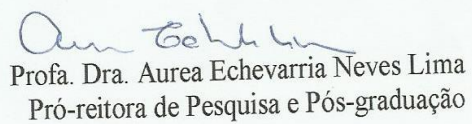 Profa. Dra. Aurea Echevarria Neves Lima
Pró-reitora de Pesquisa e Pós-graduação